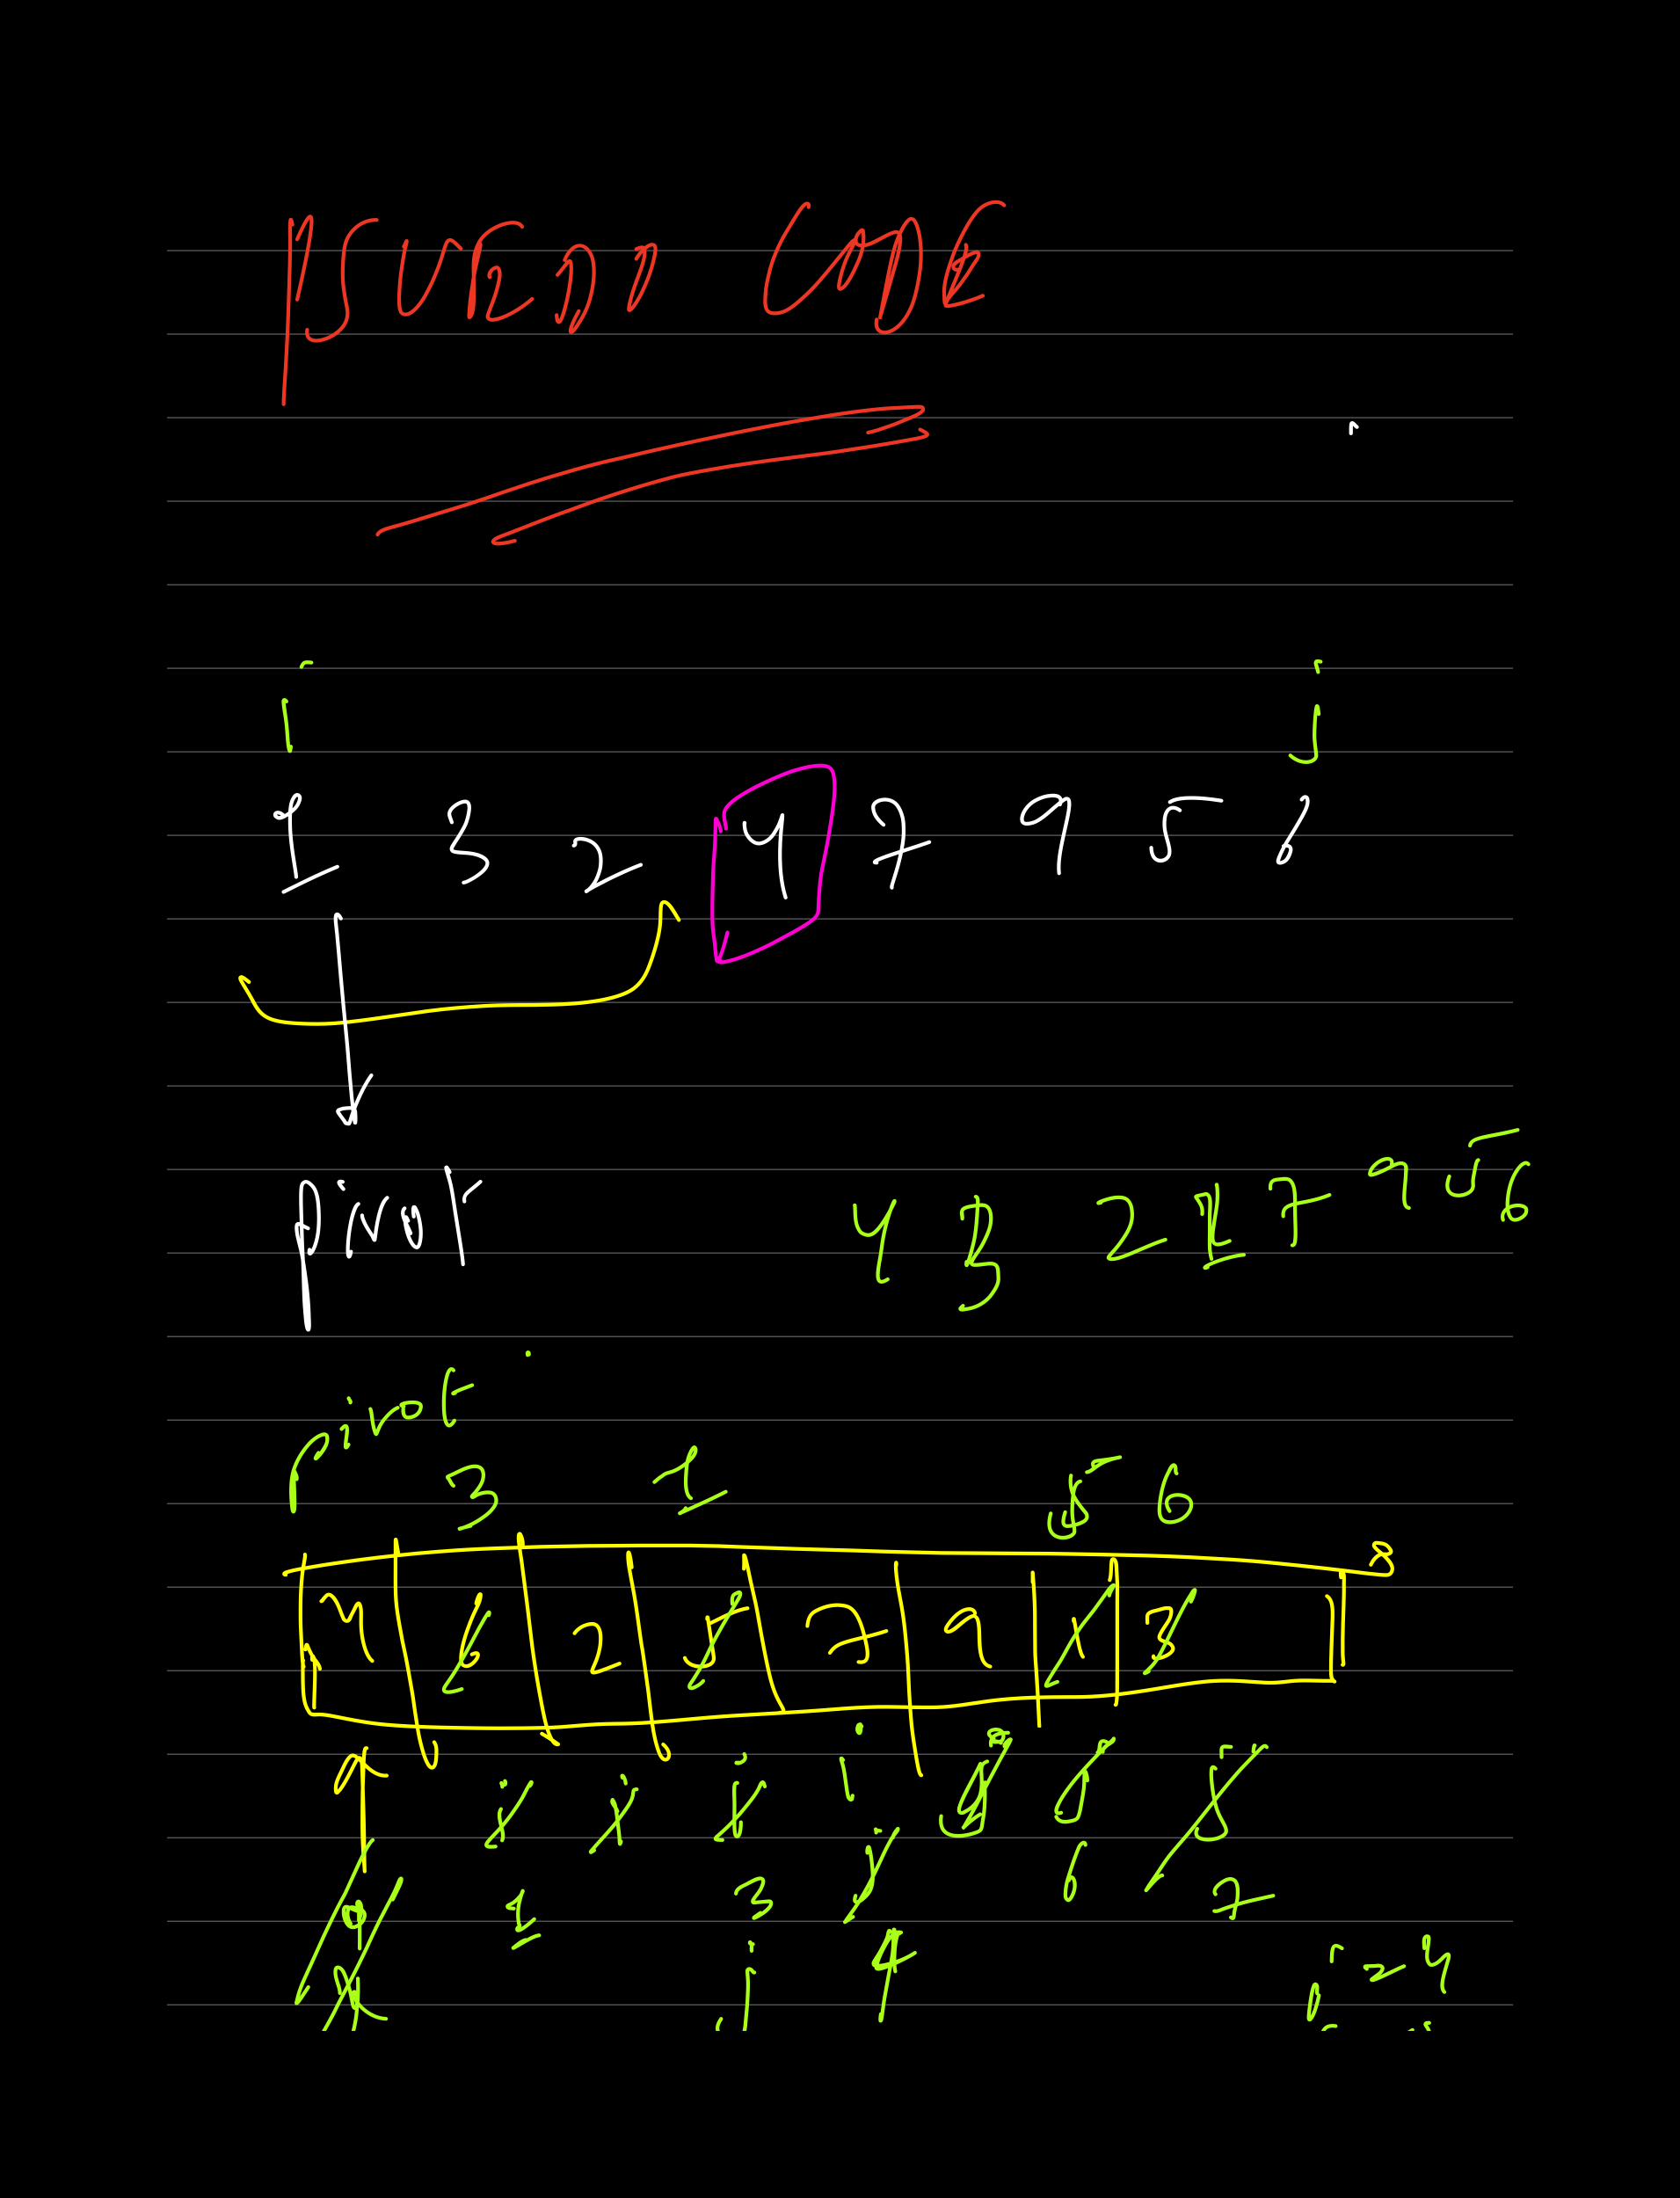 PSUEDO CODE
i j
1 3 2 4 7 9 5 6
pivot
4 3 2 1 7 9 5 6
pivot
3 1 5 6
8
4 6 2 5 7 9 1 3
i i i i j j j
0 1 3 j 6 7
j 4
i = 4